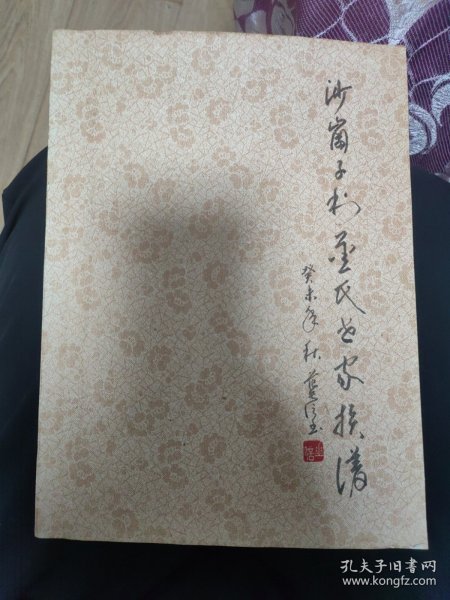 沙崗子村金氏世家族譜
癸未年秋
孔夫子旧书网
www.kongfz.com